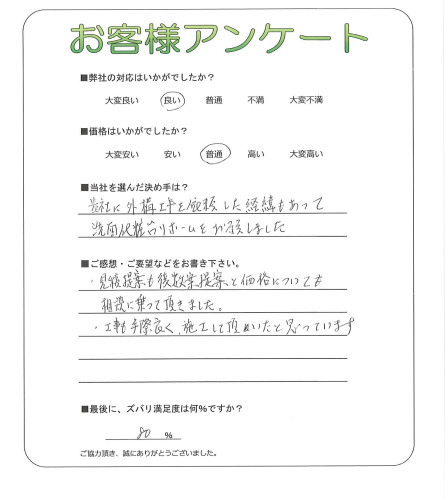 お客様アンケート
■弊社の対応はいかがでしたか?
大変良い 良い 普通 不満 大変不満
■価格はいかがでしたか?
大変安い 安い 普通 高い 大変高い
■当社を選んだ決め手は?
貴社に外構工事を依頼した経緯もあって
洗面化粧台リホームをお願しました
■ご感想・ご要望などをお書き下さい。
・見積提案も複数案提案と価格についても
相談に乗って頂きました。
・工事も手際良く、施工して頂いたと思っています
■最後に、ズバリ満足度は何%ですか?
80 %
ご協力頂き、誠にありがとうございました。